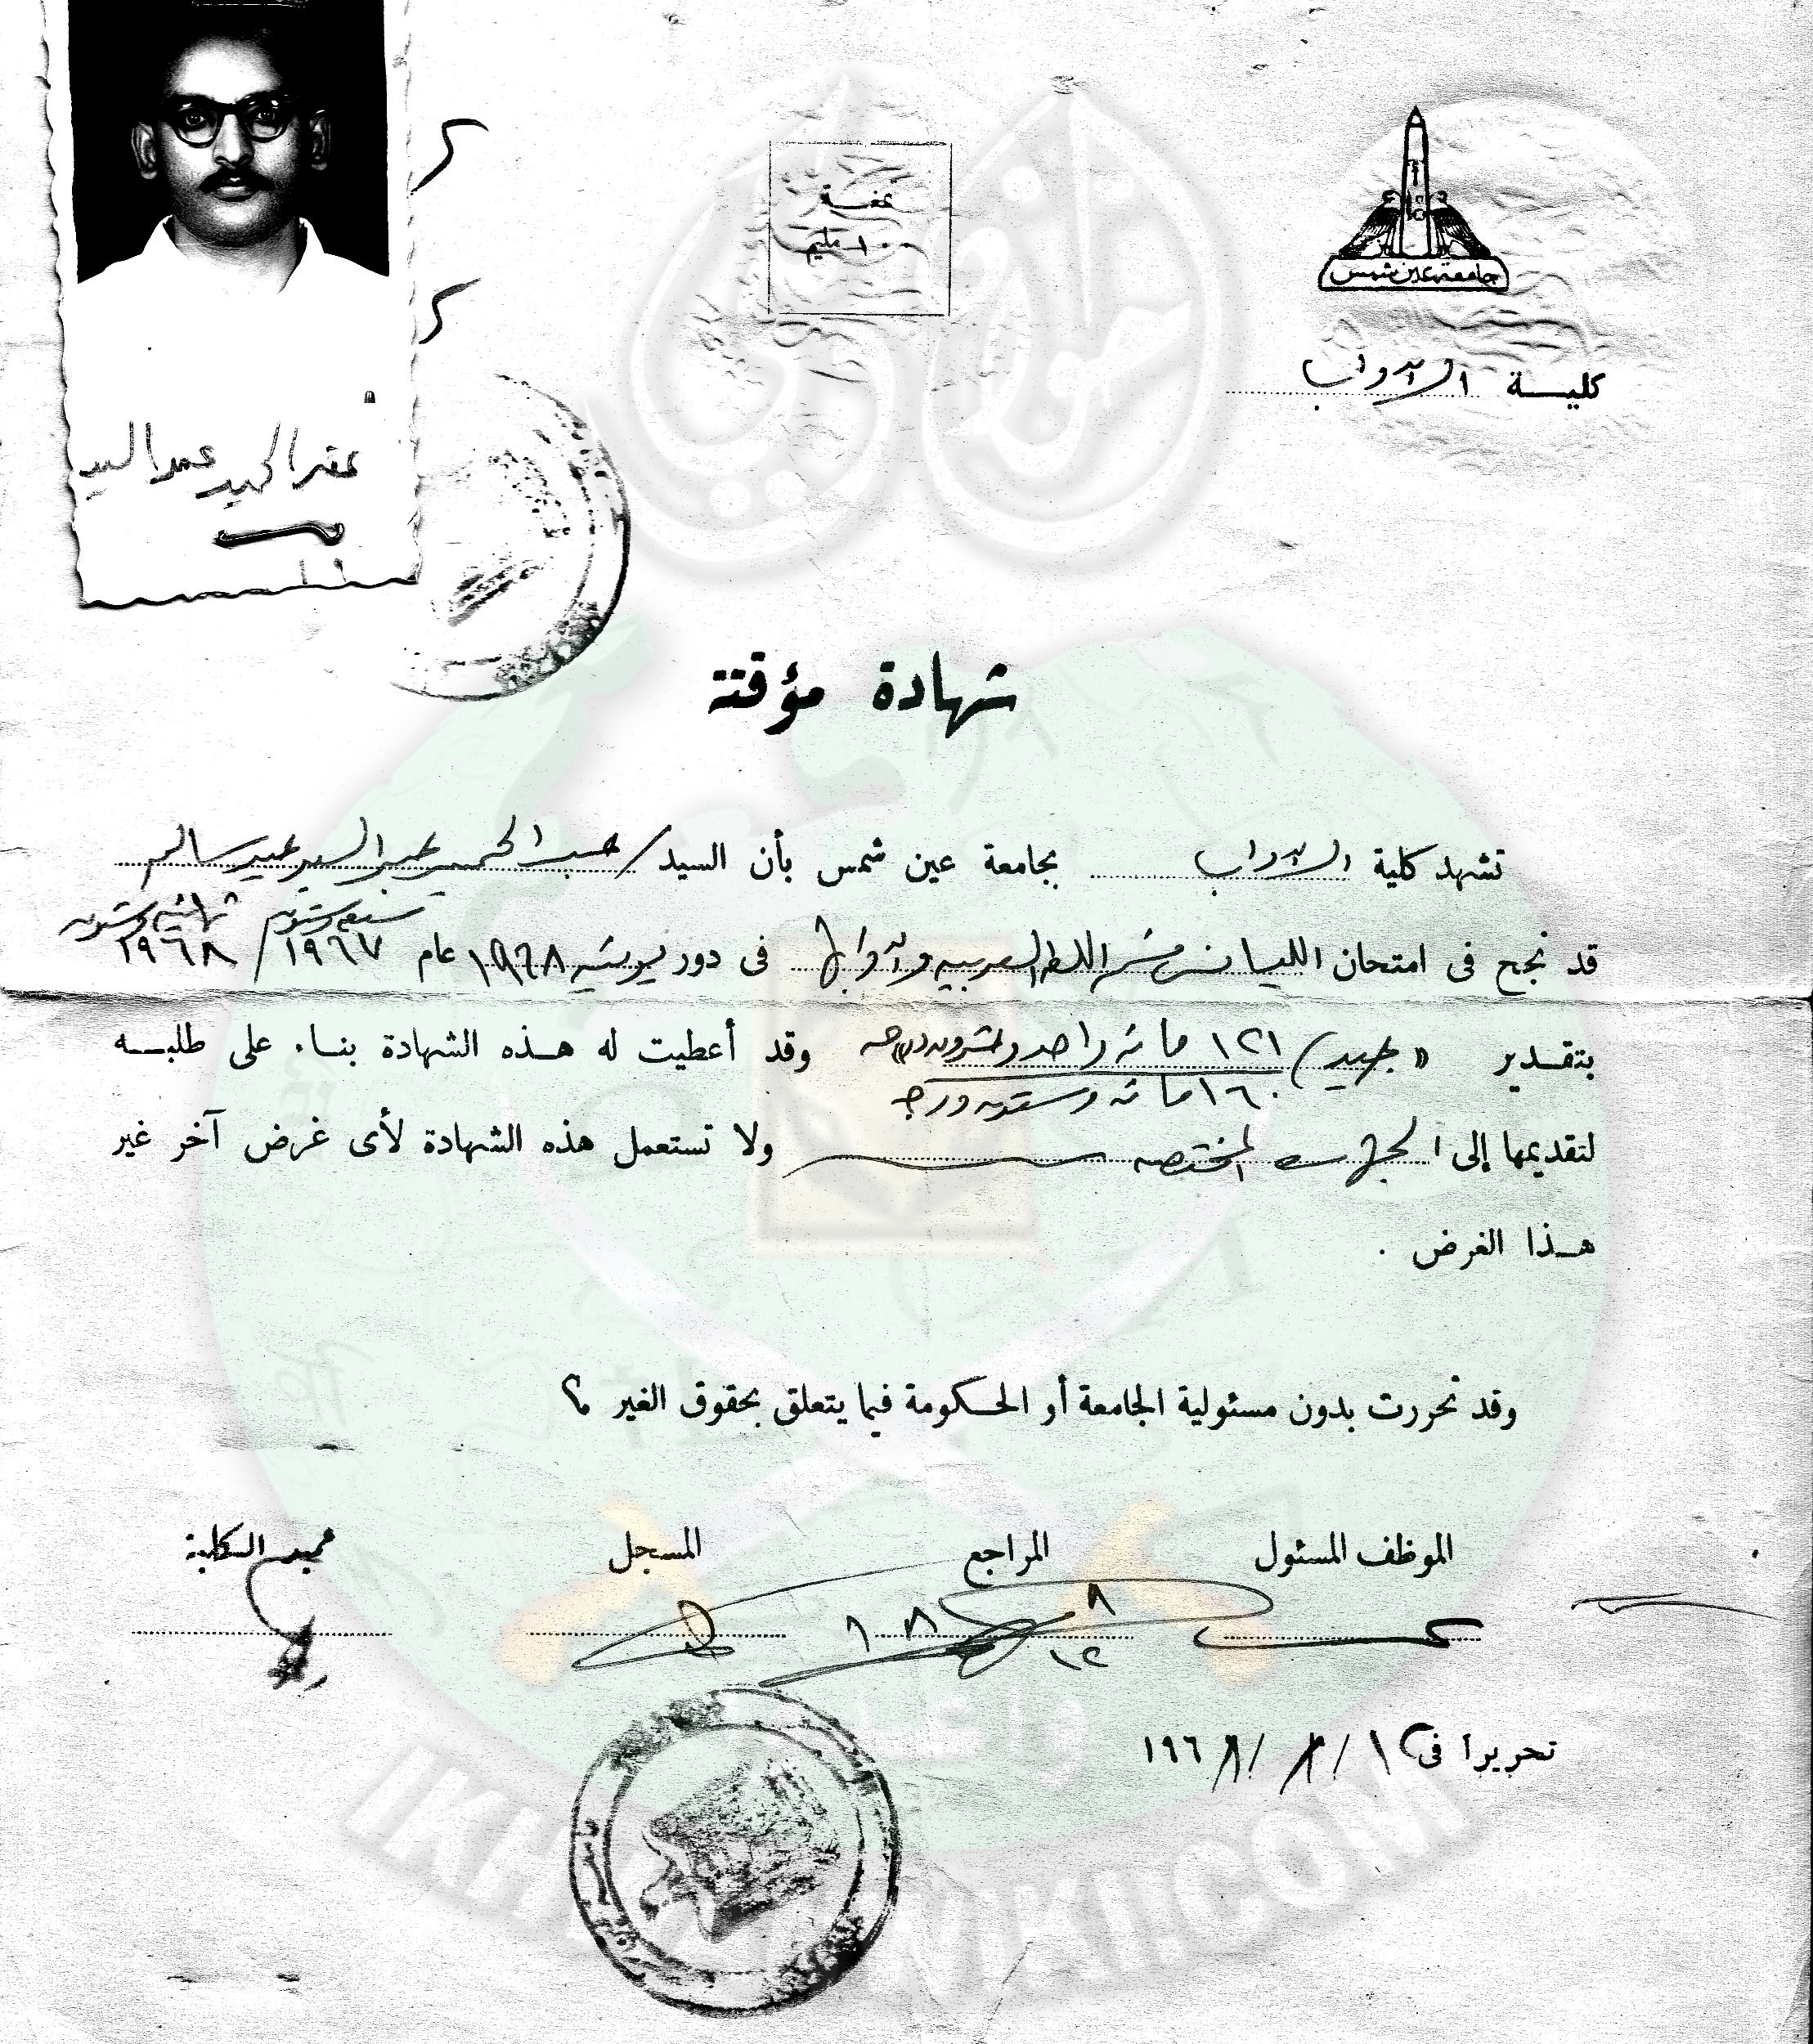 جامعة عين شمس
كلية الآداب
تمغة
١٠٠ مليم
عبد الحميد عبد السيد
شهادة مؤقتة
تشهد كلية الآداب بجامعة عين شمس بأن السيد / عبد الحميد عبد السيد عبيد سالم
سبعة وستون ثمانية وستون
قد نجح فى امتحان الليسانس قسم اللغة العربية وآدابها فى دور يونيه ١٩٦٨ عام ١٩٦٧ / ١٩٦٨
بتقدير « جيد ) ١٢١ مائة واحد وعشرون درجه وقد أعطيت له هذه الشهادة بناء على طلبه
١٦٠ مائة وستون درجه
لتقديمها إلى الجهات المختصه ولا تستعمل هذه الشهادة لأى غرض آخر غير
هذا الغرض .
وقد تحررت بدون مسئولية الجامعة أو الحكومة فيما يتعلق بحقوق الغير ؟
الموظف المسئول المراجع المسجل عميد الكلية
٨
١٢
تحريرا فى ١٢ / ٨ / ١٩٦٨